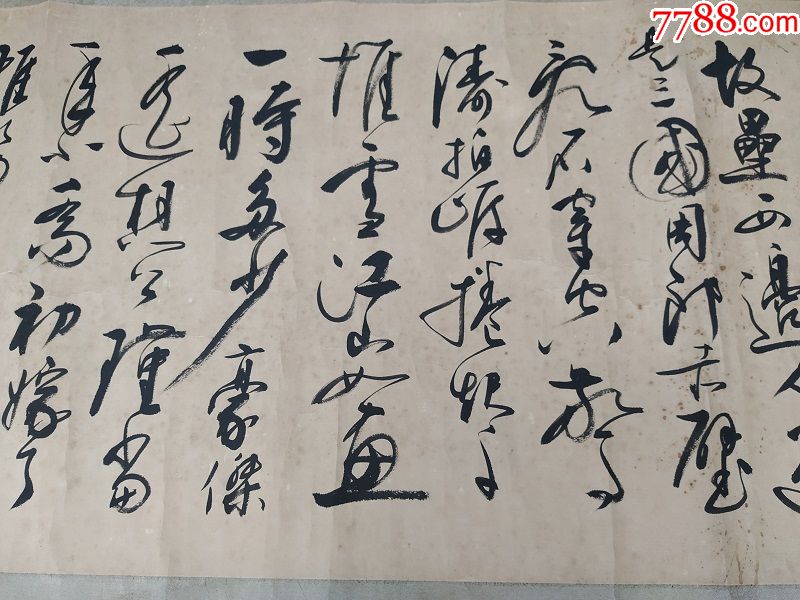 7788.com
故壘西邊人道
是三國周郎赤壁
亂石穿空驚
濤拍岸捲起千
堆雪江山如畫
一時多少豪傑
遙想公瑾當
年小喬初嫁了
雄姿